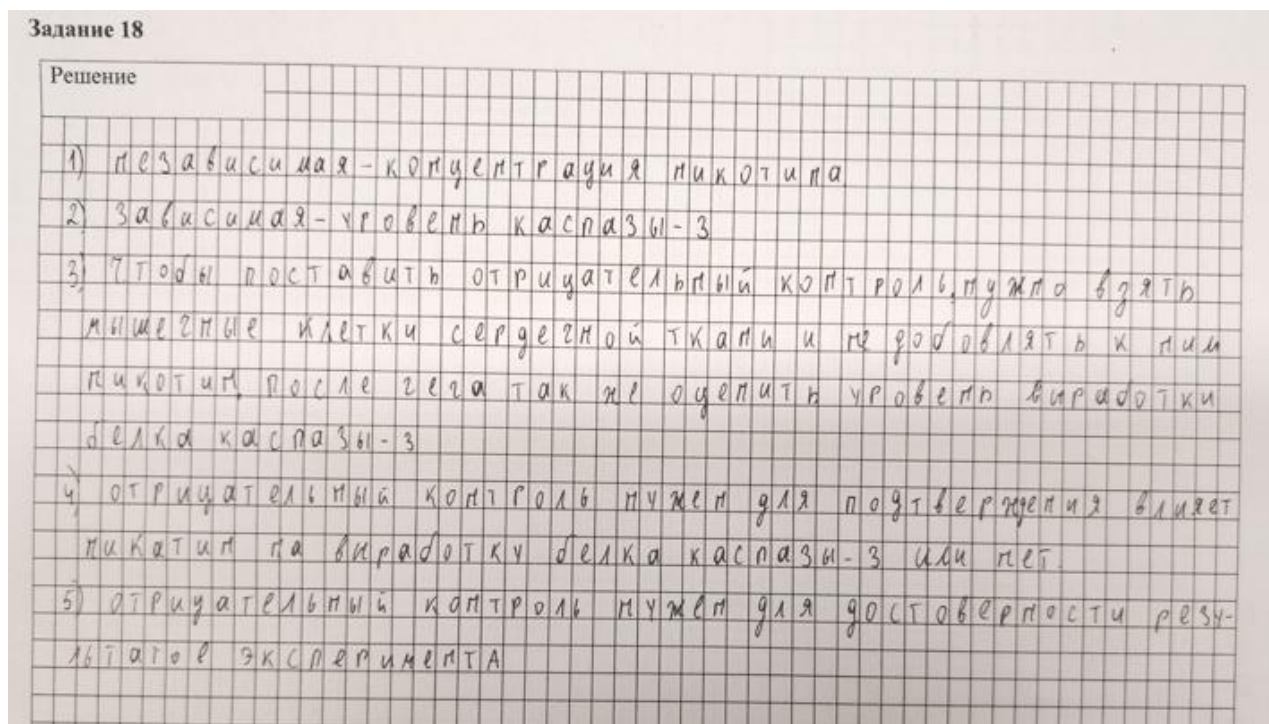 Задание 18
Решение
1) независимая-концентрация никотина
2) Зависимая-уровень каспазы-3
3) Чтобы поставить отрицательный контроль, нужно взять
мышечные клетки сердечной ткани и не добовлять к ним
никотин, после чега так же оценить уровень выработки
белка каспазы-3
4) отрицательный контроль нужен для подтверждения влияет
никатин на выработку белка каспазы-3 или нет.
5) отрицательный контроль нужен для достоверности резу-
льтатов эксперимента